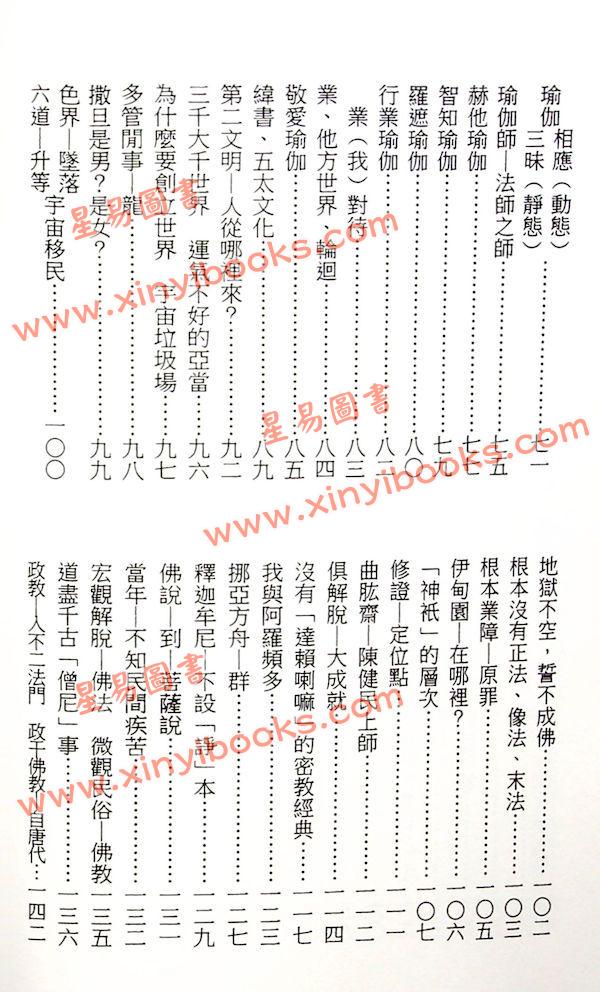 瑜伽 相應（動態）
三昧（靜態）……七一
瑜伽師—法師之師……七五
赫他瑜伽……七七
智知瑜伽……七九
羅遮瑜伽……八〇
行業瑜伽……八二
業（我）對待……八三
業、他方世界 輪迴……八四
敬愛瑜伽……八五
緯書、五太文化……八九
第二文明—人從哪裡來？……九二
三千大千世界 運氣不好的亞當……九六
為什麼要創立世界 宇宙垃圾場……九七
多管閒事—龍……九八
撒旦是男？是女？……九九
色界—墜落
六道—升等 宇宙移民……一〇〇
地獄不空，誓不成佛……一〇二
根本沒有正法、像法、末法……一〇三
根本業障—原罪……一〇五
伊甸園—在哪裡？……一〇六
「神祇」的層次……一〇七
修證—定位點……一一一
曲肱齋—陳健民上師……一一二
俱解脫—大成就……一一四
沒有「達賴喇嘛」的密教經典……一一七
我與阿羅頻多……一二三
挪亞方舟—群……一二七
釋迦牟尼—不設「諍」本……一二九
佛說—到—菩薩說……一三一
當年—不知民間疾苦……一三二
宏觀解脫—佛去 微觀民俗—佛教……一三五
道盡千古「僧尼」事……一三六
政教—入不二法門 政干佛教—自唐代……一四二
星易圖書
www.xinyibooks.com
星易圖書
www.xinyibooks.com
星易圖書
www.xinyibooks.com